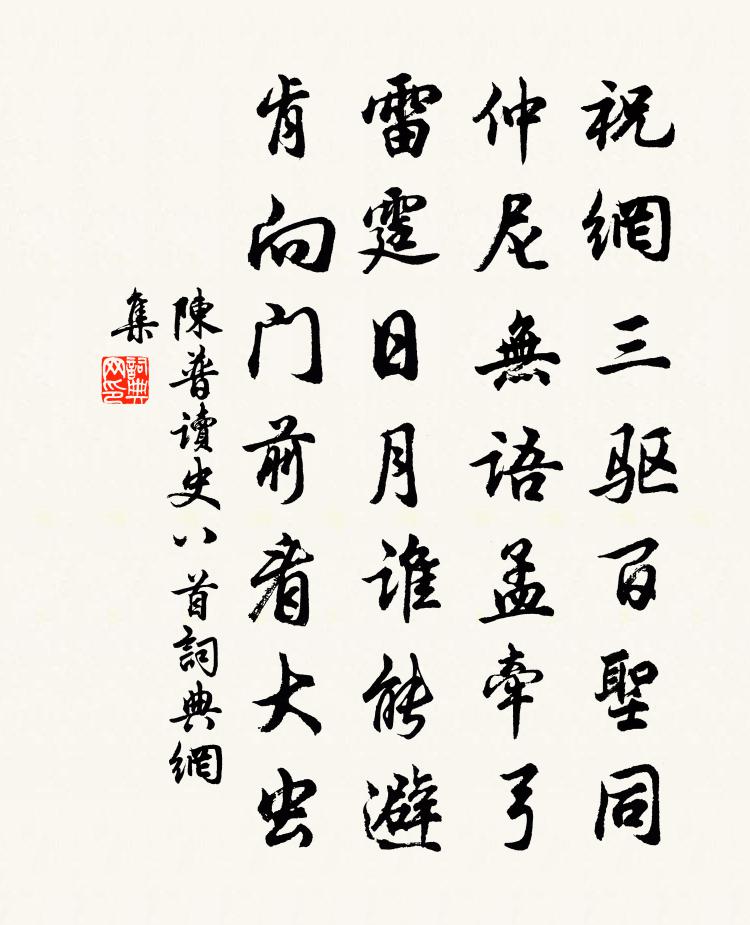 祝網三驱百聖同
仲尼無語孟牽弓
雷霆日月誰能避
肯向门前看大虫
陳普讀史八首詞典網
集
詞典
网印